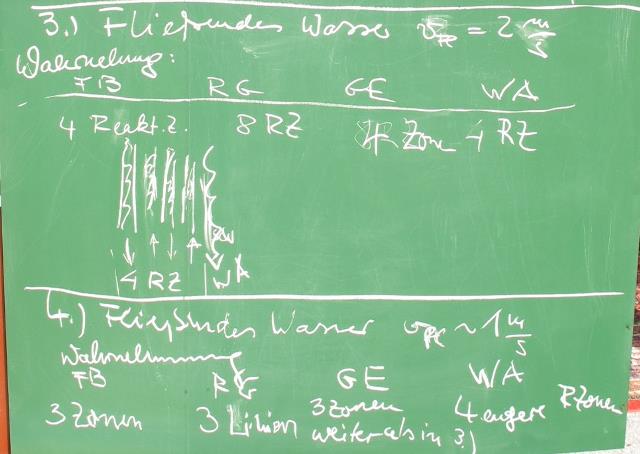 3.) Fließendes Wasser = 2 m/s
Wahrnehung:
FB RG GE WA
4 Reakt.z. 8 RZ Zone 4 RZ
4 RZ WA
4.) Fließendes Wasser ~ 1 m/s
Wahrnehmung
FB RG GE WA
3 Zonen 3 Linien 3 Zonen 4 engere RZonen
weiter als in 3.)